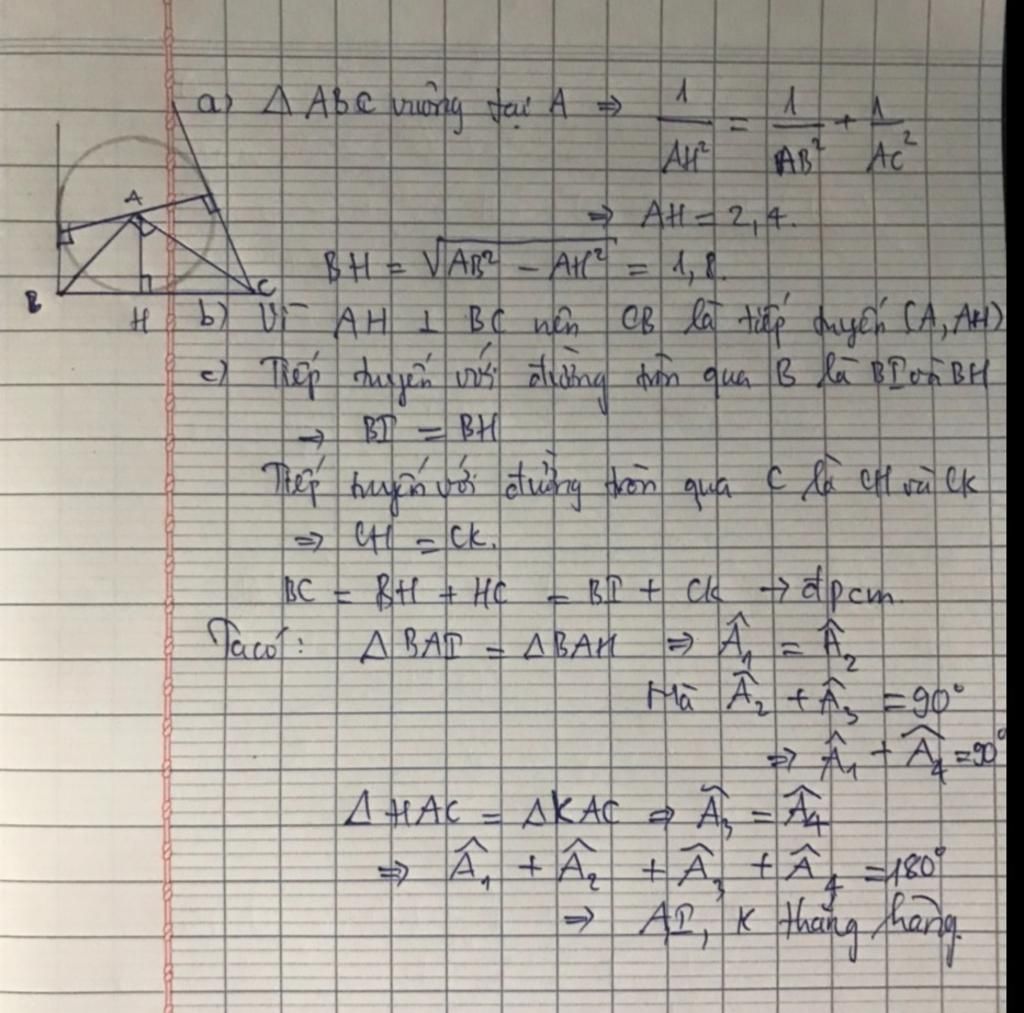 a) Δ ABC vuông tại A ⇒ 1/AH² = 1/AB² + 1/AC²
⇒ AH = 2,4.
BH = √(AB² - AH²) = 1,8.
b) Vì AH ⊥ BC nên CB là tiếp tuyến (A, AH)
c) Tiếp tuyến với đường tròn qua B là BI và BH
→ BI = BH
Tiếp tuyến với đường tròn qua C là CH và CK
⇒ CH = CK.
BC = BH + HC = BI + CK → đpcm.
Ta có: Δ BAI = Δ BAH ⇒ Â₁ = Â₂
Mà Â₂ + Â₃ = 90°
⇒ Â₁ + Â₄ = 90°
Δ HAC = Δ KAC ⇒ Â₃ = Â₄
⇒ Â₁ + Â₂ + Â₃ + Â₄ = 180°
⇒ AI, K thẳng hàng.
A
B
H
C